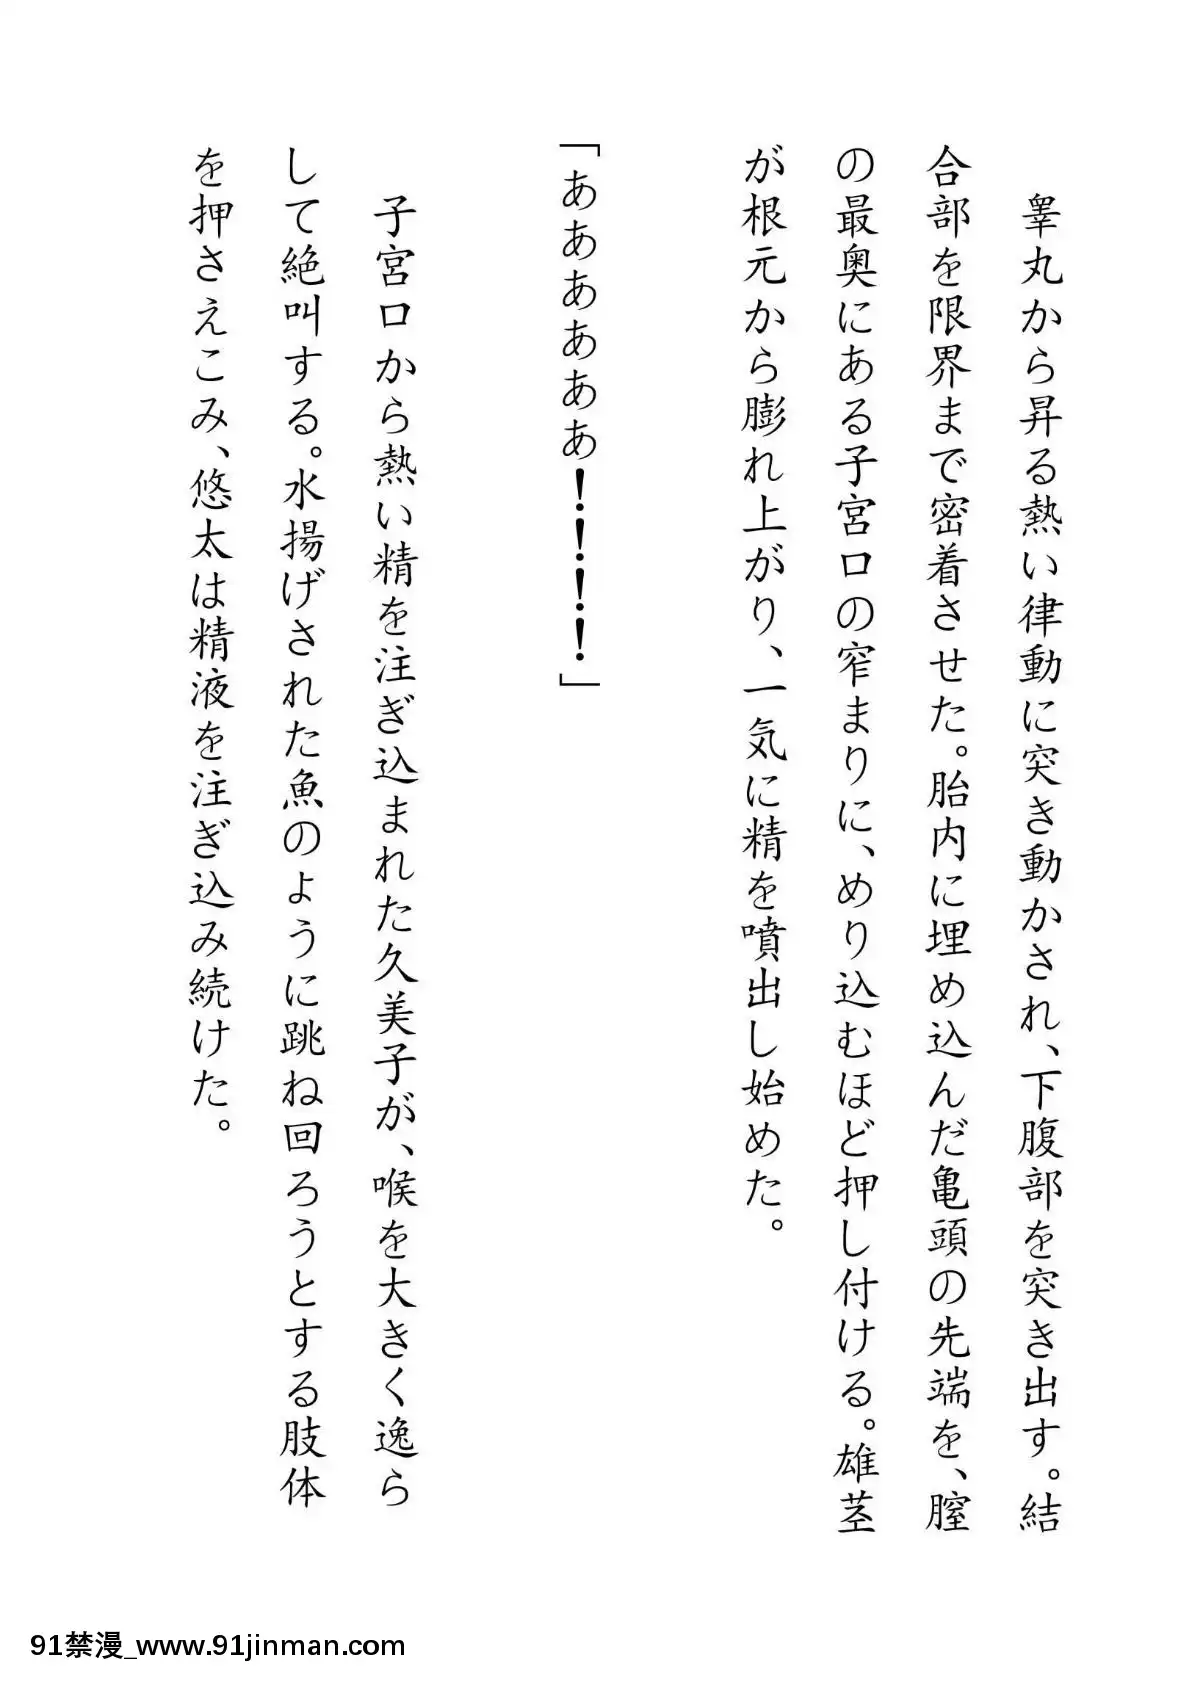 睾丸から昇る熱い律動に突き動かされ、下腹部を突き出す。結
合部を限界まで密着させた。胎内に埋め込んだ亀頭の先端を、膣
の最奥にある子宮口の窄まりに、めり込むほど押し付ける。雄茎
が根元から膨れ上がり、一気に精を噴出し始めた。
「ああああああ！！！！」
子宮口から熱い精を注ぎ込まれた久美子が、喉を大きく逸ら
して絶叫する。水揚げされた魚のように跳ね回ろうとする肢体
を押さえこみ、悠太は精液を注ぎ込み続けた。
91禁漫_www.91jinman.com